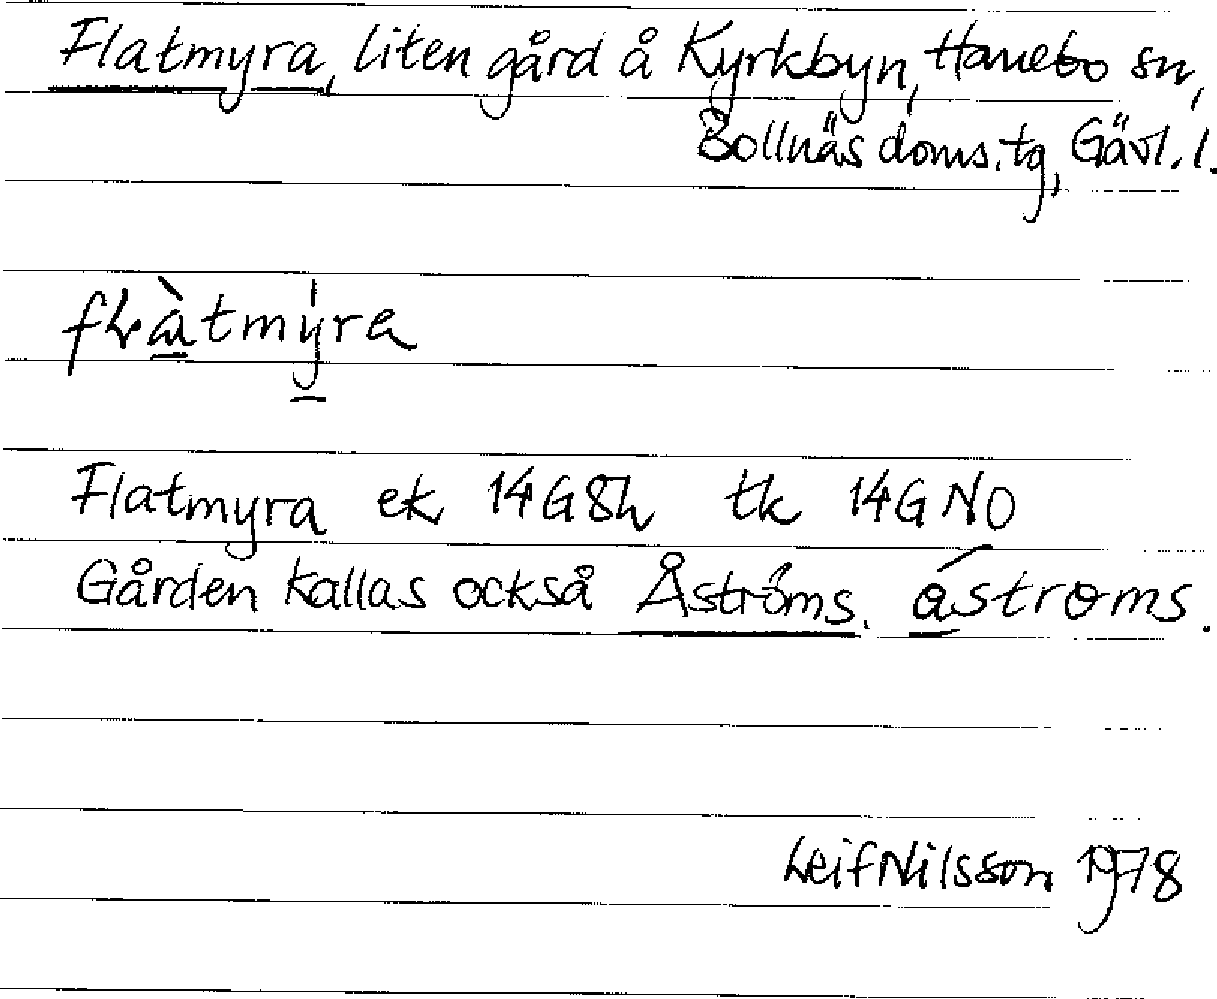 Flatmyra, liten gård å Kyrkbyn, Hanebo sn,
Bollnäs doms.tg, Gävl.l.
fɽàtmy̍ra
Flatmyra ek 14G8h tk 14GNO
Gården kallas också Åströms. åstrɵms.
Leif Nilsson 1978